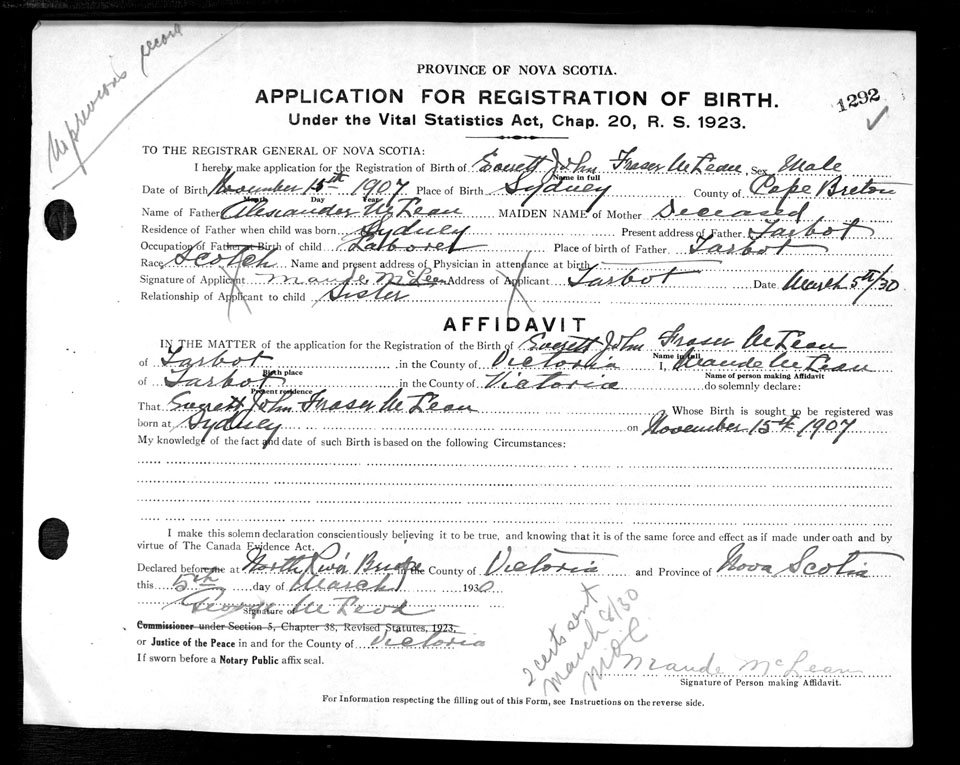 No previous record
PROVINCE OF NOVA SCOTIA.
APPLICATION FOR REGISTRATION OF BIRTH.
1292
Under the Vital Statistics Act, Chap. 20, R. S. 1923.
TO THE REGISTRAR GENERAL OF NOVA SCOTIA:
I hereby make application for the Registration of Birth of Everett John Fraser McLean Sex Male
Name in full
Date of Birth November 15th 1907 Place of Birth Sydney County of Cape Breton
Month Day Year
Name of Father Alexander McLean MAIDEN NAME of Mother Deceased
Residence of Father when child was born Sydney Present address of Father Tarbot
Occupation of Father at Birth of child Laborer Place of birth of Father Tarbot
Race Scotch Name and present address of Physician in attendance at birth
Signature of Applicant Maude McLean Address of Applicant Tarbot Date March 5th/30
Relationship of Applicant to child Sister
AFFIDAVIT
IN THE MATTER of the application for the Registration of the Birth of Everett John Fraser McLean
Name in full
of Tarbot in the County of Victoria I, Maude McLean
Birth place Name of person making Affidavit
of Tarbot in the County of Victoria do solemnly declare:
Present residence
That Everett John Fraser McLean Whose Birth is sought to be registered was
born at Sydney on November 15th 1907
My knowledge of the fact and date of such Birth is based on the following Circumstances:
I make this solemn declaration conscientiously believing it to be true, and knowing that it is of the same force and effect as if made under oath and by
virtue of The Canada Evidence Act.
Declared before me at North River Bridge in the County of Victoria and Province of Nova Scotia
this 5th day of March 1930
George McLeod
Signature of
Commissioner under Section 5, Chapter 38, Revised Statutes, 1923,
or Justice of the Peace in and for the County of Victoria
If sworn before a Notary Public affix seal.
2 certs sent
March 8/30
Maude McLean
Signature of Person making Affidavit.
For Information respecting the filling out of this Form, see Instructions on the reverse side.